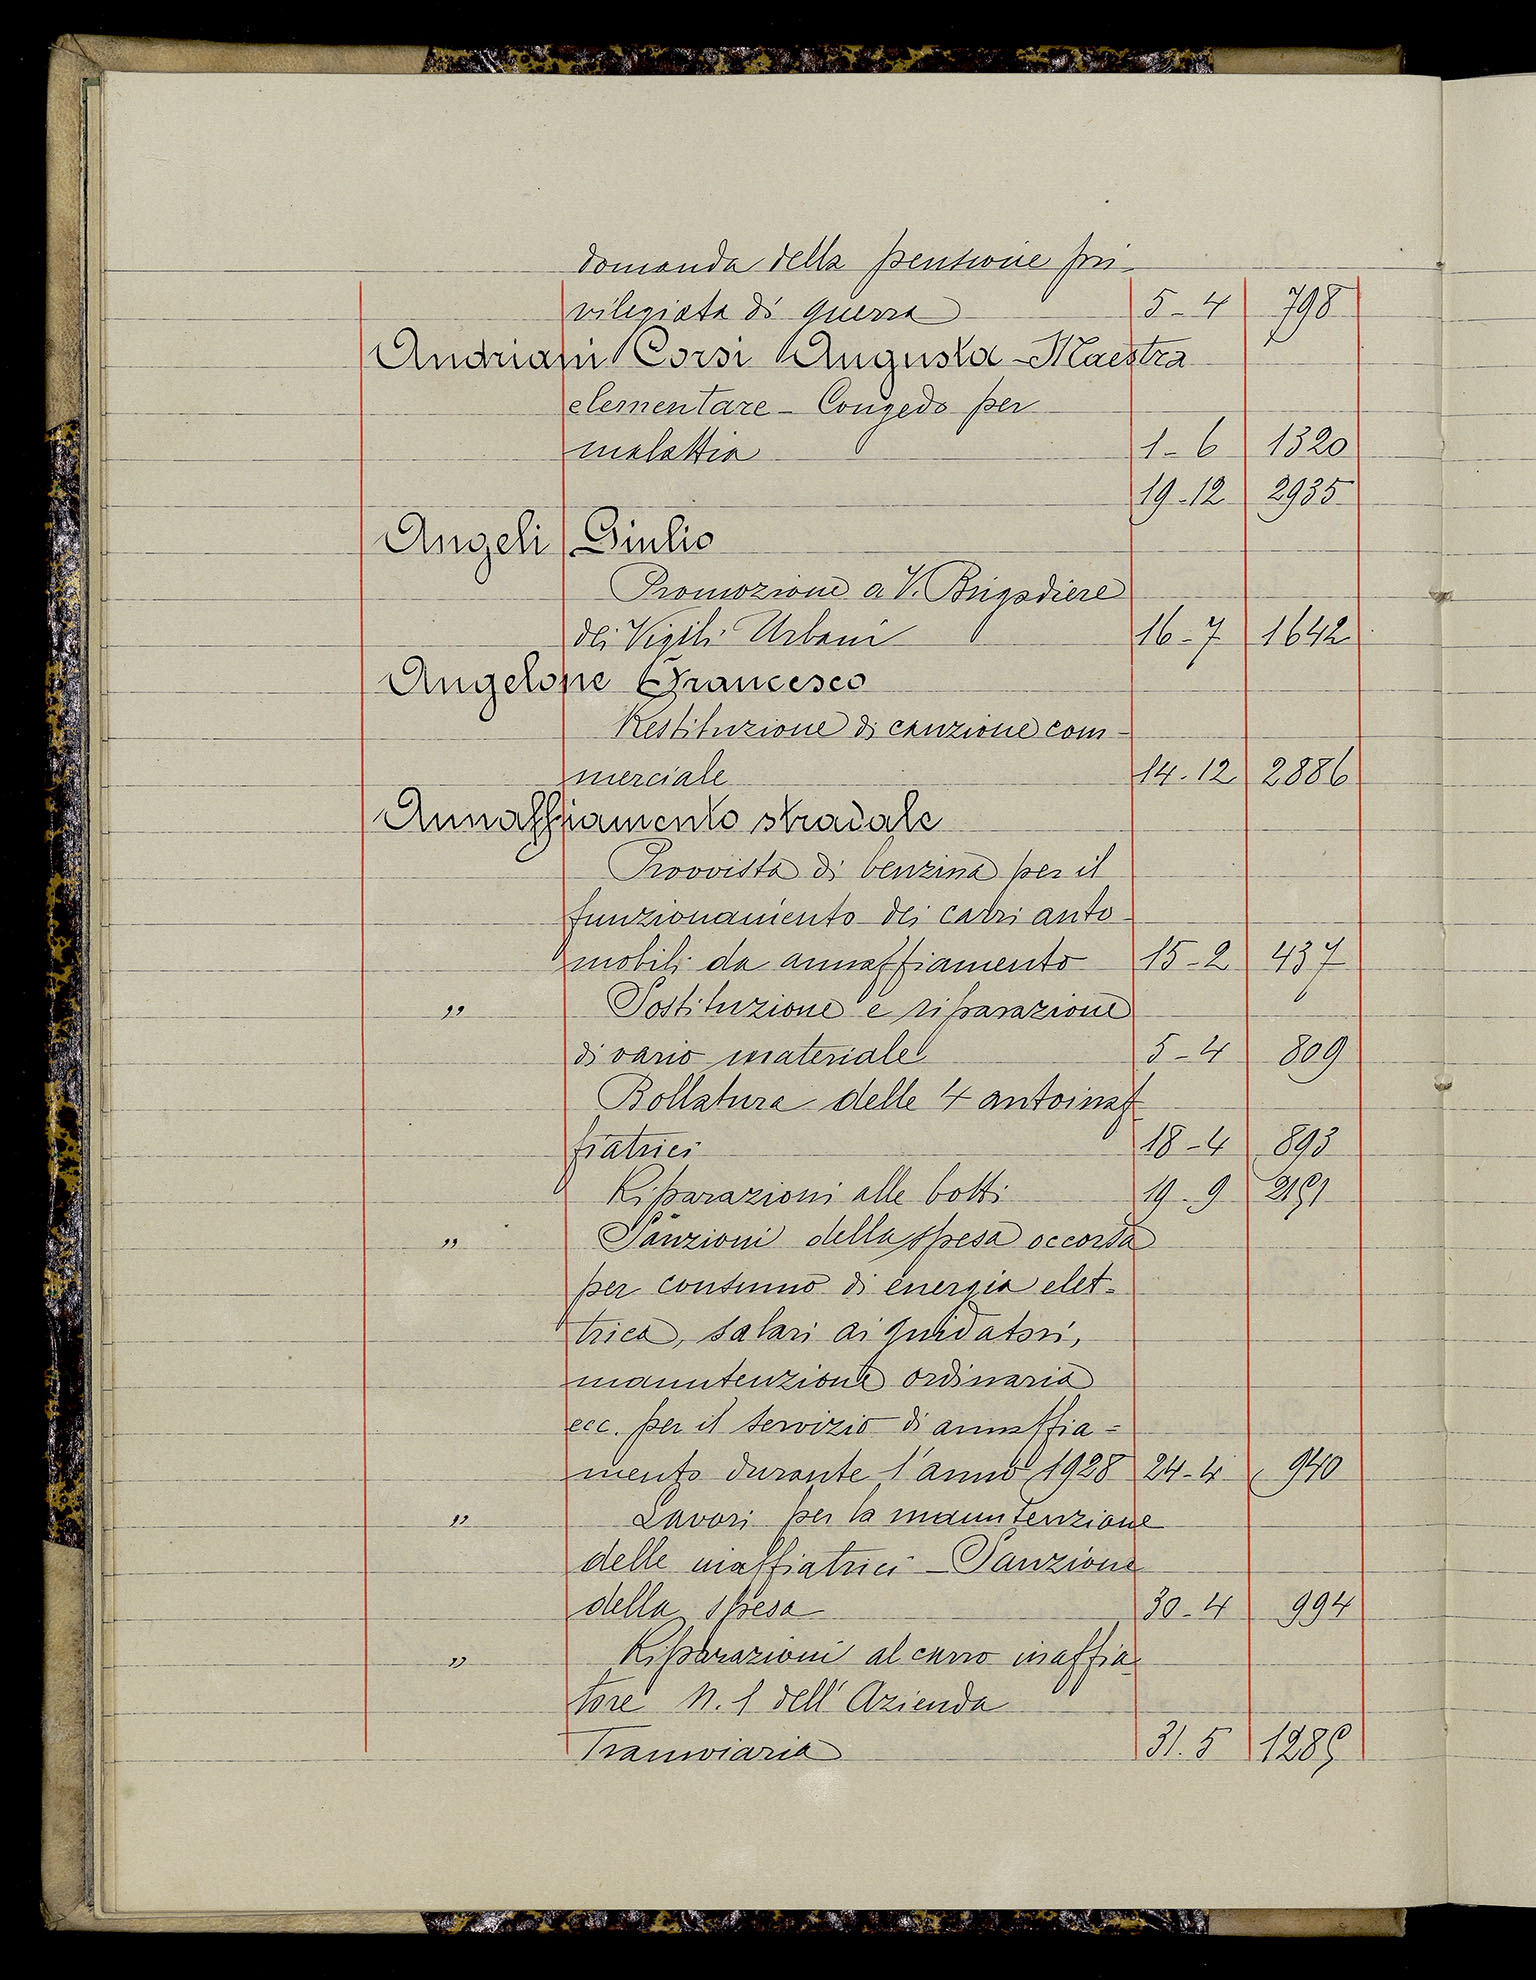 domanda della pensione pri-
vilegiata di guerra 5-4 798
Andriani Corsi Augusta - Maestra
elementare - Congedo per
malattia 1-6 1320
19-12 2935
Angeli Giulio
Promozione a V. Brigadiere
dei Vigili Urbani 16-7 1642
Angelone Francesco
Restituzione di cauzione com-
merciale 14-12 2886
Annaffiamento stradale
Provvista di benzina per il
funzionamento dei carri auto-
mobili da annaffiamento 15-2 437
" Sostituzione e riparazione
di vario materiale 5-4 809
Bollatura delle 4 autoinaf
fiatrici 18-4 893
Riparazioni alle botti 19-9
" Sanzioni della spesa occorsa
per consumo di energia elet=
trica, salari ai guidatori,
manutenzione ordinaria
ecc. per il servizio di annaffia=
mento durante l'anno 1928 24-4 940
" Lavori per la manutenzione
delle inaffiatrici - Sanzione
della spesa 30-4 994
" Riparazioni al carro inaffia-
tore N. 1 dell'Azienda
Tranviaria 31.5 1285